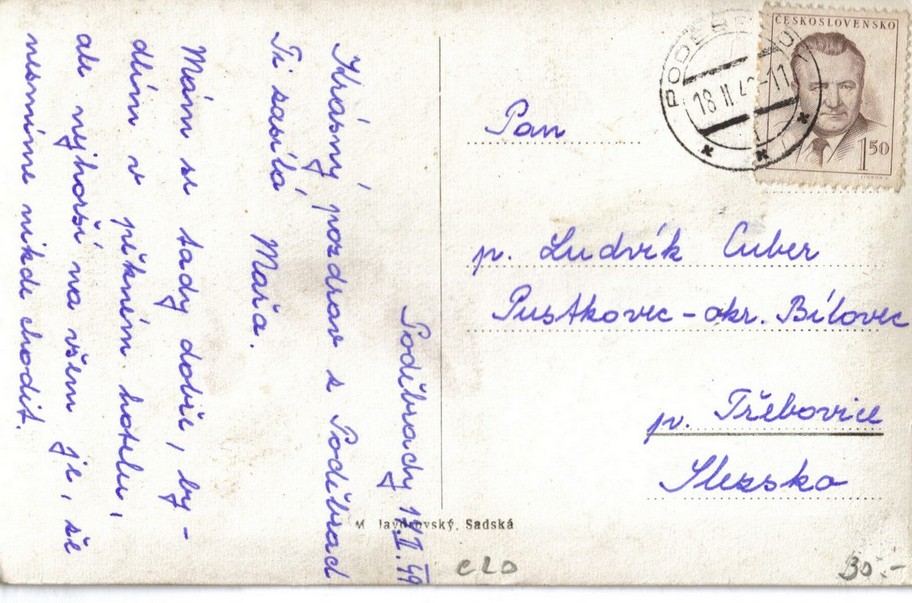 Poděbrady 17.II.49
Krásný pozdrav z Poděbrad
Ti zasílá Mařa.
Mám se tady dobře, by-
dlím v pěkném hotelu,
ale nejhorší na všem je, že
nesmíme nikde chodit.
ČESKOSLOVENSKO
1.50
18 II 49-11
Pan
p. Ludvík Cuber
Pustkovec - okr. Bílovec
p. Třebovice
Slezsko
Sadská
c20
30.-